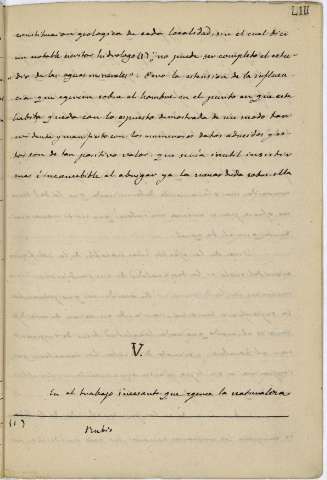 LIII
constitucion geologica de cada localidad, sin el cual dice
un notable escritor hidrologo (1) no puede ser completo el estu-
"dio de las aguas minerales". Pero la estension de la influen-
cia que egercen sobre el hombre en el punto en que este
habita queda con lo espuesto demostrada de un modo tan
evidente y manifiesto con los numerosos datos aducidos y es-
tos son de tan positivo valor que seria inutil insistir
mas é innecesible el abrigar ya la menor duda sobre ella
V.
En el trabajo incesante que egerce la naturaleza
(1) Rubio